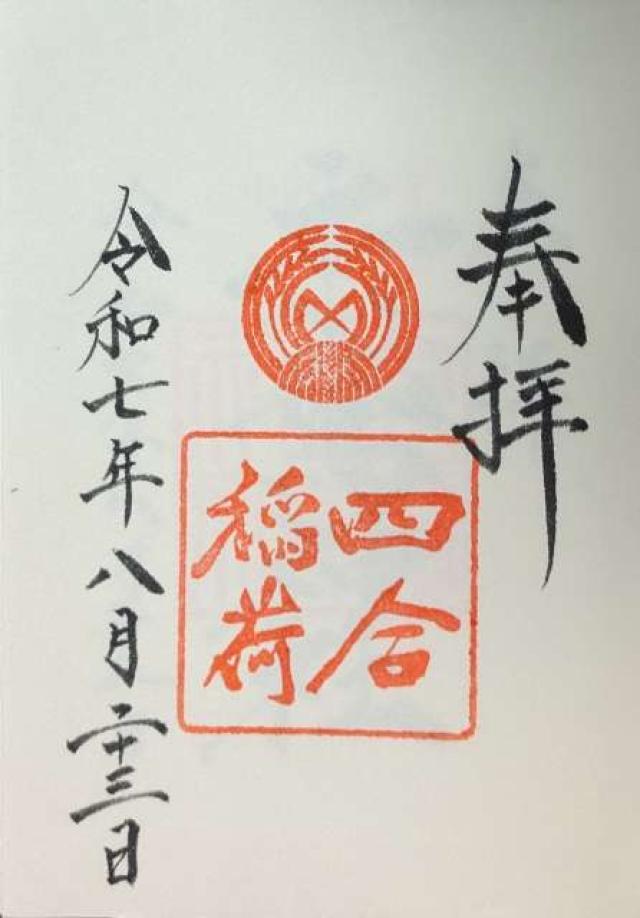 奉拝
四合
稲荷
令和七年八月二十三日